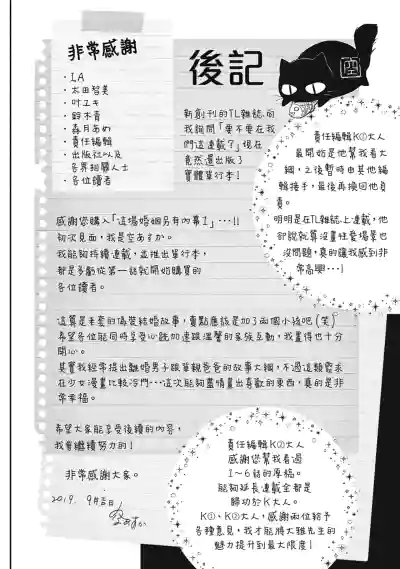 非常感謝
・IA
・太田智美
・叶ユキ
・鈴木青
・森月あめ
・責任編輯
・出版社以及
各界相關人士
・各位讀者
後記
新創刊的TL雜誌向
我詢問「要不要在我
們這連載？」現在
竟然還出版了
實體單行本！
責任編輯K①大人
最開始是他幫我看大
綱，之後暫時由其他編
輯接手，最後再換回他負
責。
明明是在TL雜誌上連載，他
卻說就算沒畫性愛場景也
沒問題，真的讓我感到非
常高興…！
感謝您購入「這場婚姻另有內幕1」…!!
初次見面，我是空あすか。
我能夠持續連載，並推出單行本，
都是多虧從第一話就開始購買的
各位讀者。
這算是老套的偽裝結婚故事，賣點應該是加了兩個小孩吧（笑）
希望各位能同時享受心跳加速跟溫馨的家族互動，我畫得也十分
開心。
其實我經常提出離婚男子跟單親爸爸的故事大綱，不過這類需求
在少女漫畫比較冷門…這次能夠盡情畫出喜歡的東西，真的是非
常幸福。
希望大家能享受後續的內容，
我會繼續努力的！
非常感謝大家。
2019. 9月吉日
空あすか
責任編輯K②大人
感謝您幫我看過
1～6話的原稿。
能夠延長連載全都是
歸功於K大人。
K①、K②大人，感謝兩位給予
各種意見，我才能將大雅先生的
魅力提升到最大限度！